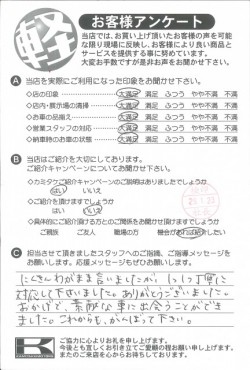 軽
お客様アンケート
当店では、お買い上げ頂いたお客様の声を可能
な限り現場に反映し、お客様により良い商品と
サービスを提供する事に努めています。
大変お手数ですが是非お声をお聞かせ下さい。
A 当店を実際にご利用になった印象をお聞かせ下さい。
◇店の印象 大満足 満足 ふつう やや不満 不満
◇店内・展示場の清掃 大満足 満足 ふつう やや不満 不満
◇お車の品揃え 大満足 満足 ふつう やや不満 不満
◇営業スタッフの対応 大満足 満足 ふつう やや不満 不満
◇納車時のお車の状態 大満足 満足 ふつう やや不満 不満
B 当店はご紹介を大切にしております。
ご紹介キャンペーンについてお聞かせ下さい。
◇カミタケご紹介キャンペーンのご説明はありましたでしょうか
はい いいえ
◇ご紹介を頂けますでしょうか
はい いいえ
◇具体的にご紹介頂ける方とのご関係をお聞かせ頂けますでしょうか
ご親族 ご友人 職場の方 機会があれば紹介したい
C 担当させて頂きましたスタッフへのご指摘、ご指導メッセージを
お願いします。応援メッセージもぜひお願いします。
たくさんわがまま言いましたが、いつも丁寧に
対応して下さいました。ありがとうございました。
おかげで、素敵な車に出会うことができ
ました。これからも、がんばって下さい。
K
ご協力に心よりお礼を申し上げます。
今後とも宜しくお引き立てご愛顧の程お願い申し上げます。
またのご来店を心からお待ちしております。